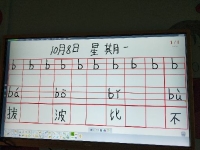 10月8日 星期一
b b b b b b b b b
bá bō bǐ bù
拨 波 比 不